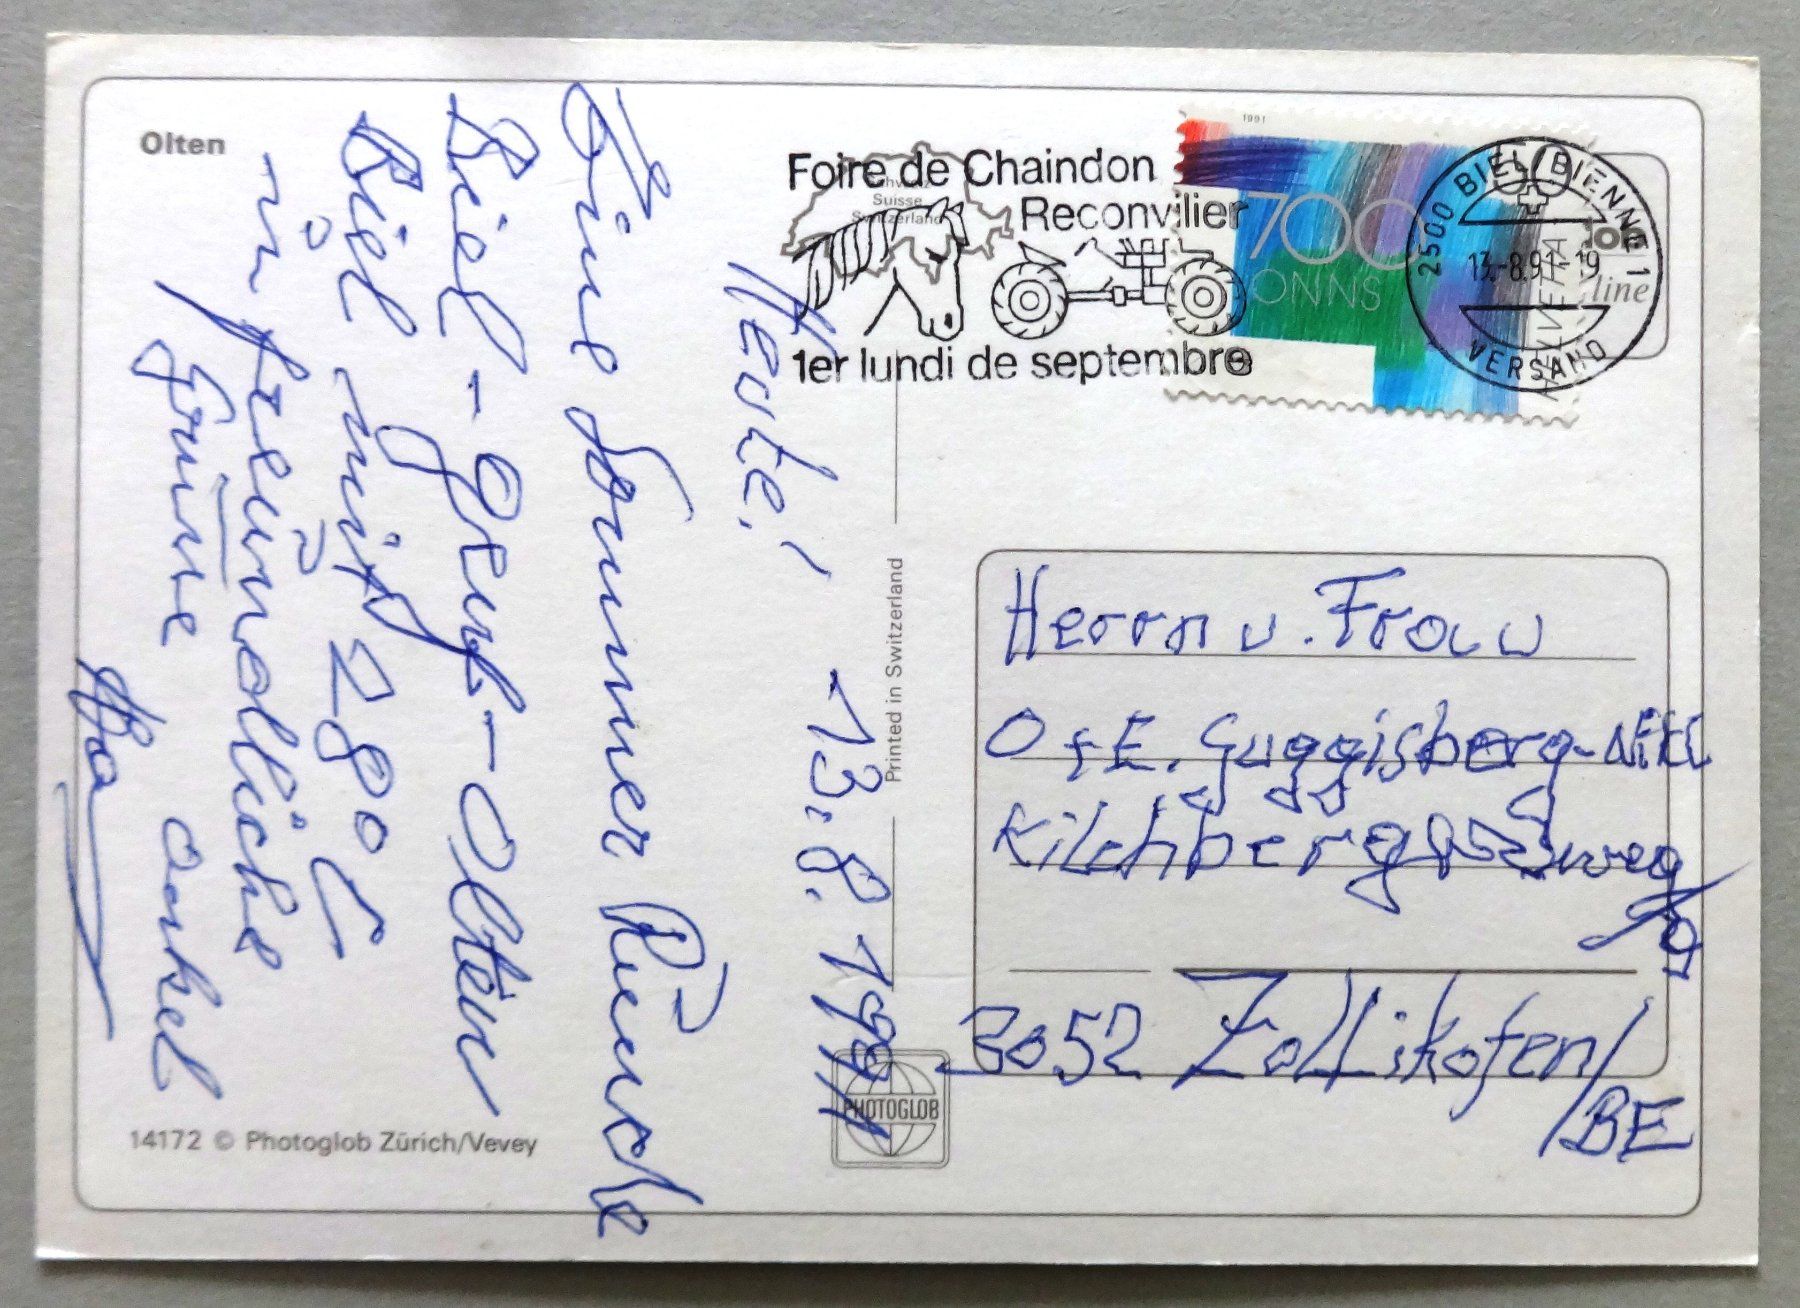 Olten
Schweiz
Suisse
Switzerland
Foire de Chaindon
Reconvilier
1er lundi de septembre
1991
700
ONNS
HELVETIA
2500 BIEL/BIENNE 1
13.-8.91-19
VERSAND
line
Heute! 13.8.1991
Eine Sommer Runde
Biel - Genf - Olten
Biel mit 28° C
in freundliche
Grüsse Onkel
Printed in Switzerland
PHOTOGLOB
14172 © Photoglob Zürich/Vevey
Herrn u. Frau
O + E. Guggisberg-
Kilchberg
3052 Zollikofen/
BE